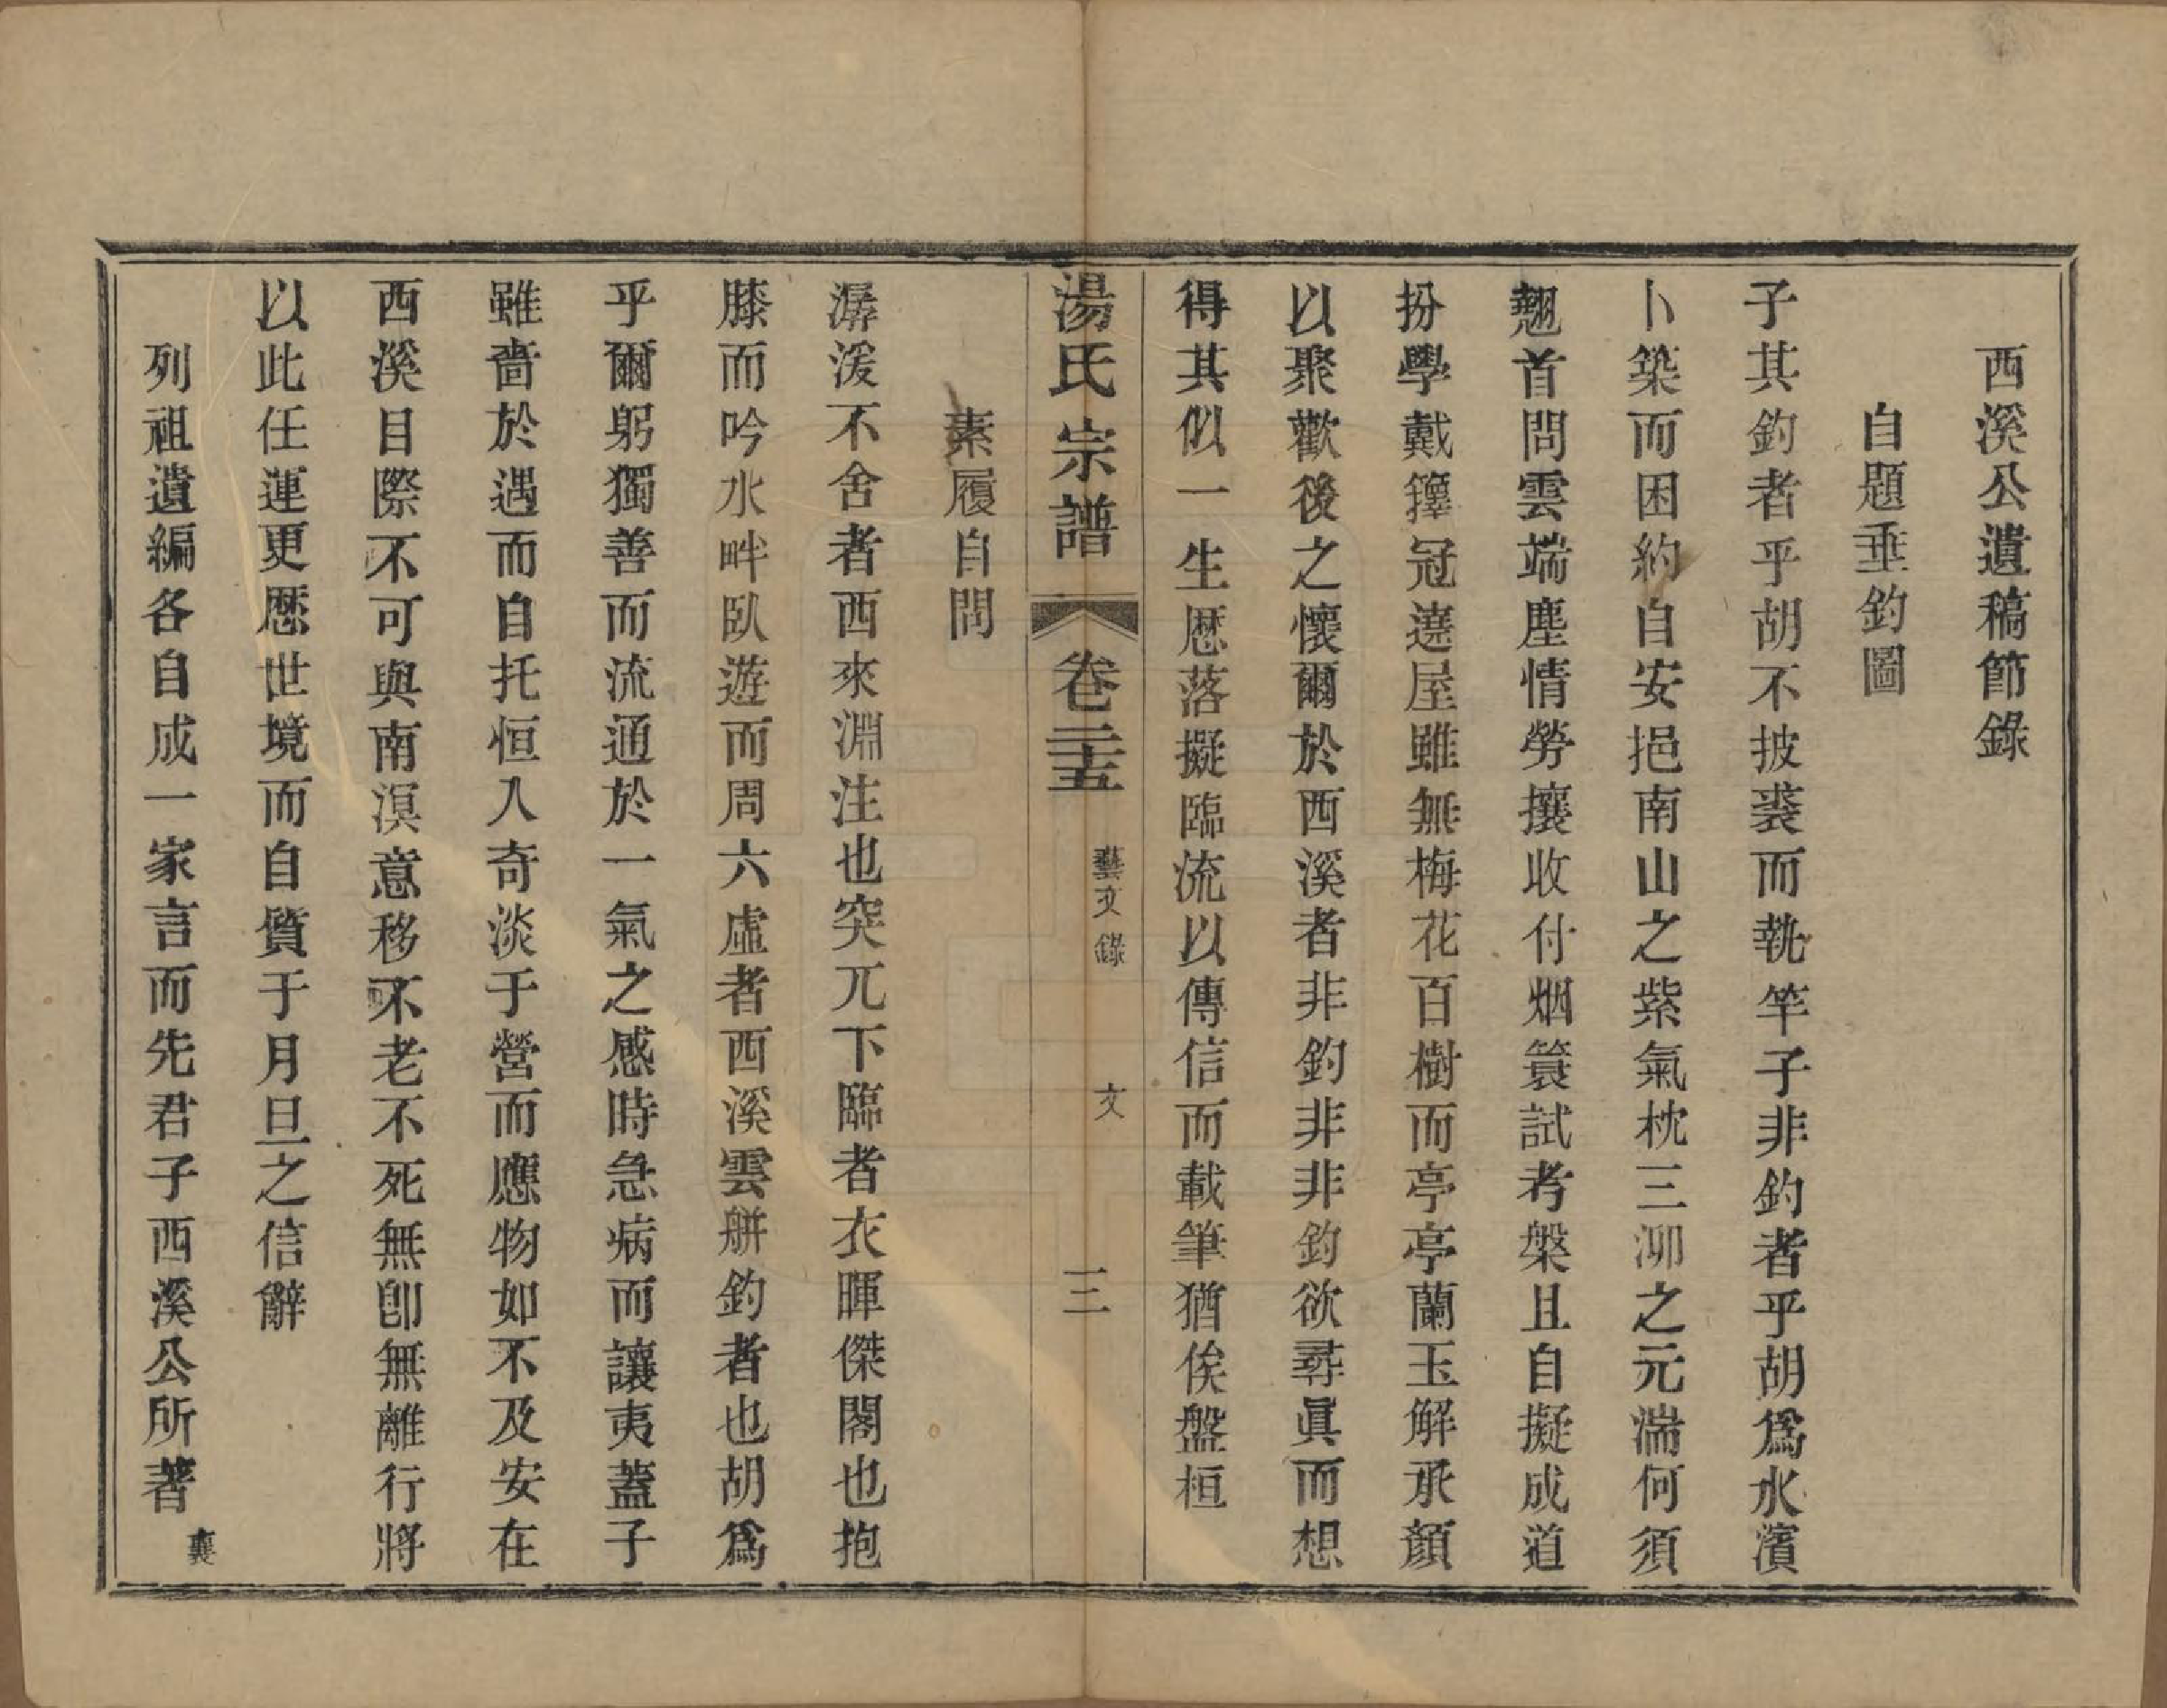 西溪公遺稿節錄
自題垂釣圖
子其釣者乎胡不披裘而執竿子非釣者乎胡爲水濱
卜築而困約自安挹南山之紫氣枕三泖之元湍何須
翹首問雲端塵情勞攘收付烟簑試考槃且自擬成道
扮學戴籜冠遶屋雖無梅花百樹而亭亭蘭玉解承顏
以聚歡後之懷爾於西溪者非釣非非釣欲尋眞而想
得其似一生歷落擬臨流以傳信而載筆猶俟盤桓
湯氏宗譜 卷二十五 藝文錄 文 三
素履自問
潺湲不舍者西來淵注也突兀下臨者衣暉傑閣也抱
膝而吟水畔臥遊而周六虛者西溪雲艀釣者也胡爲
乎爾躬獨善而流通於一氣之感時急病而讓夷蓋子
雖嗇於遇而自托恒入奇淡于營而應物如不及安在
西溪目際不可與南溟意移不老不死無卽無離行將
以此任運更歷世境而自質于月旦之信辭
列祖遺編各自成一家言而先君子西溪公所著 襄